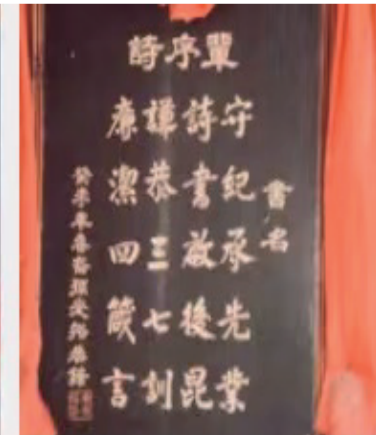 輩序詩
書名
守紀承先業
詩書啟後昆
謙恭三七訓
廉潔四箴言
癸未年春